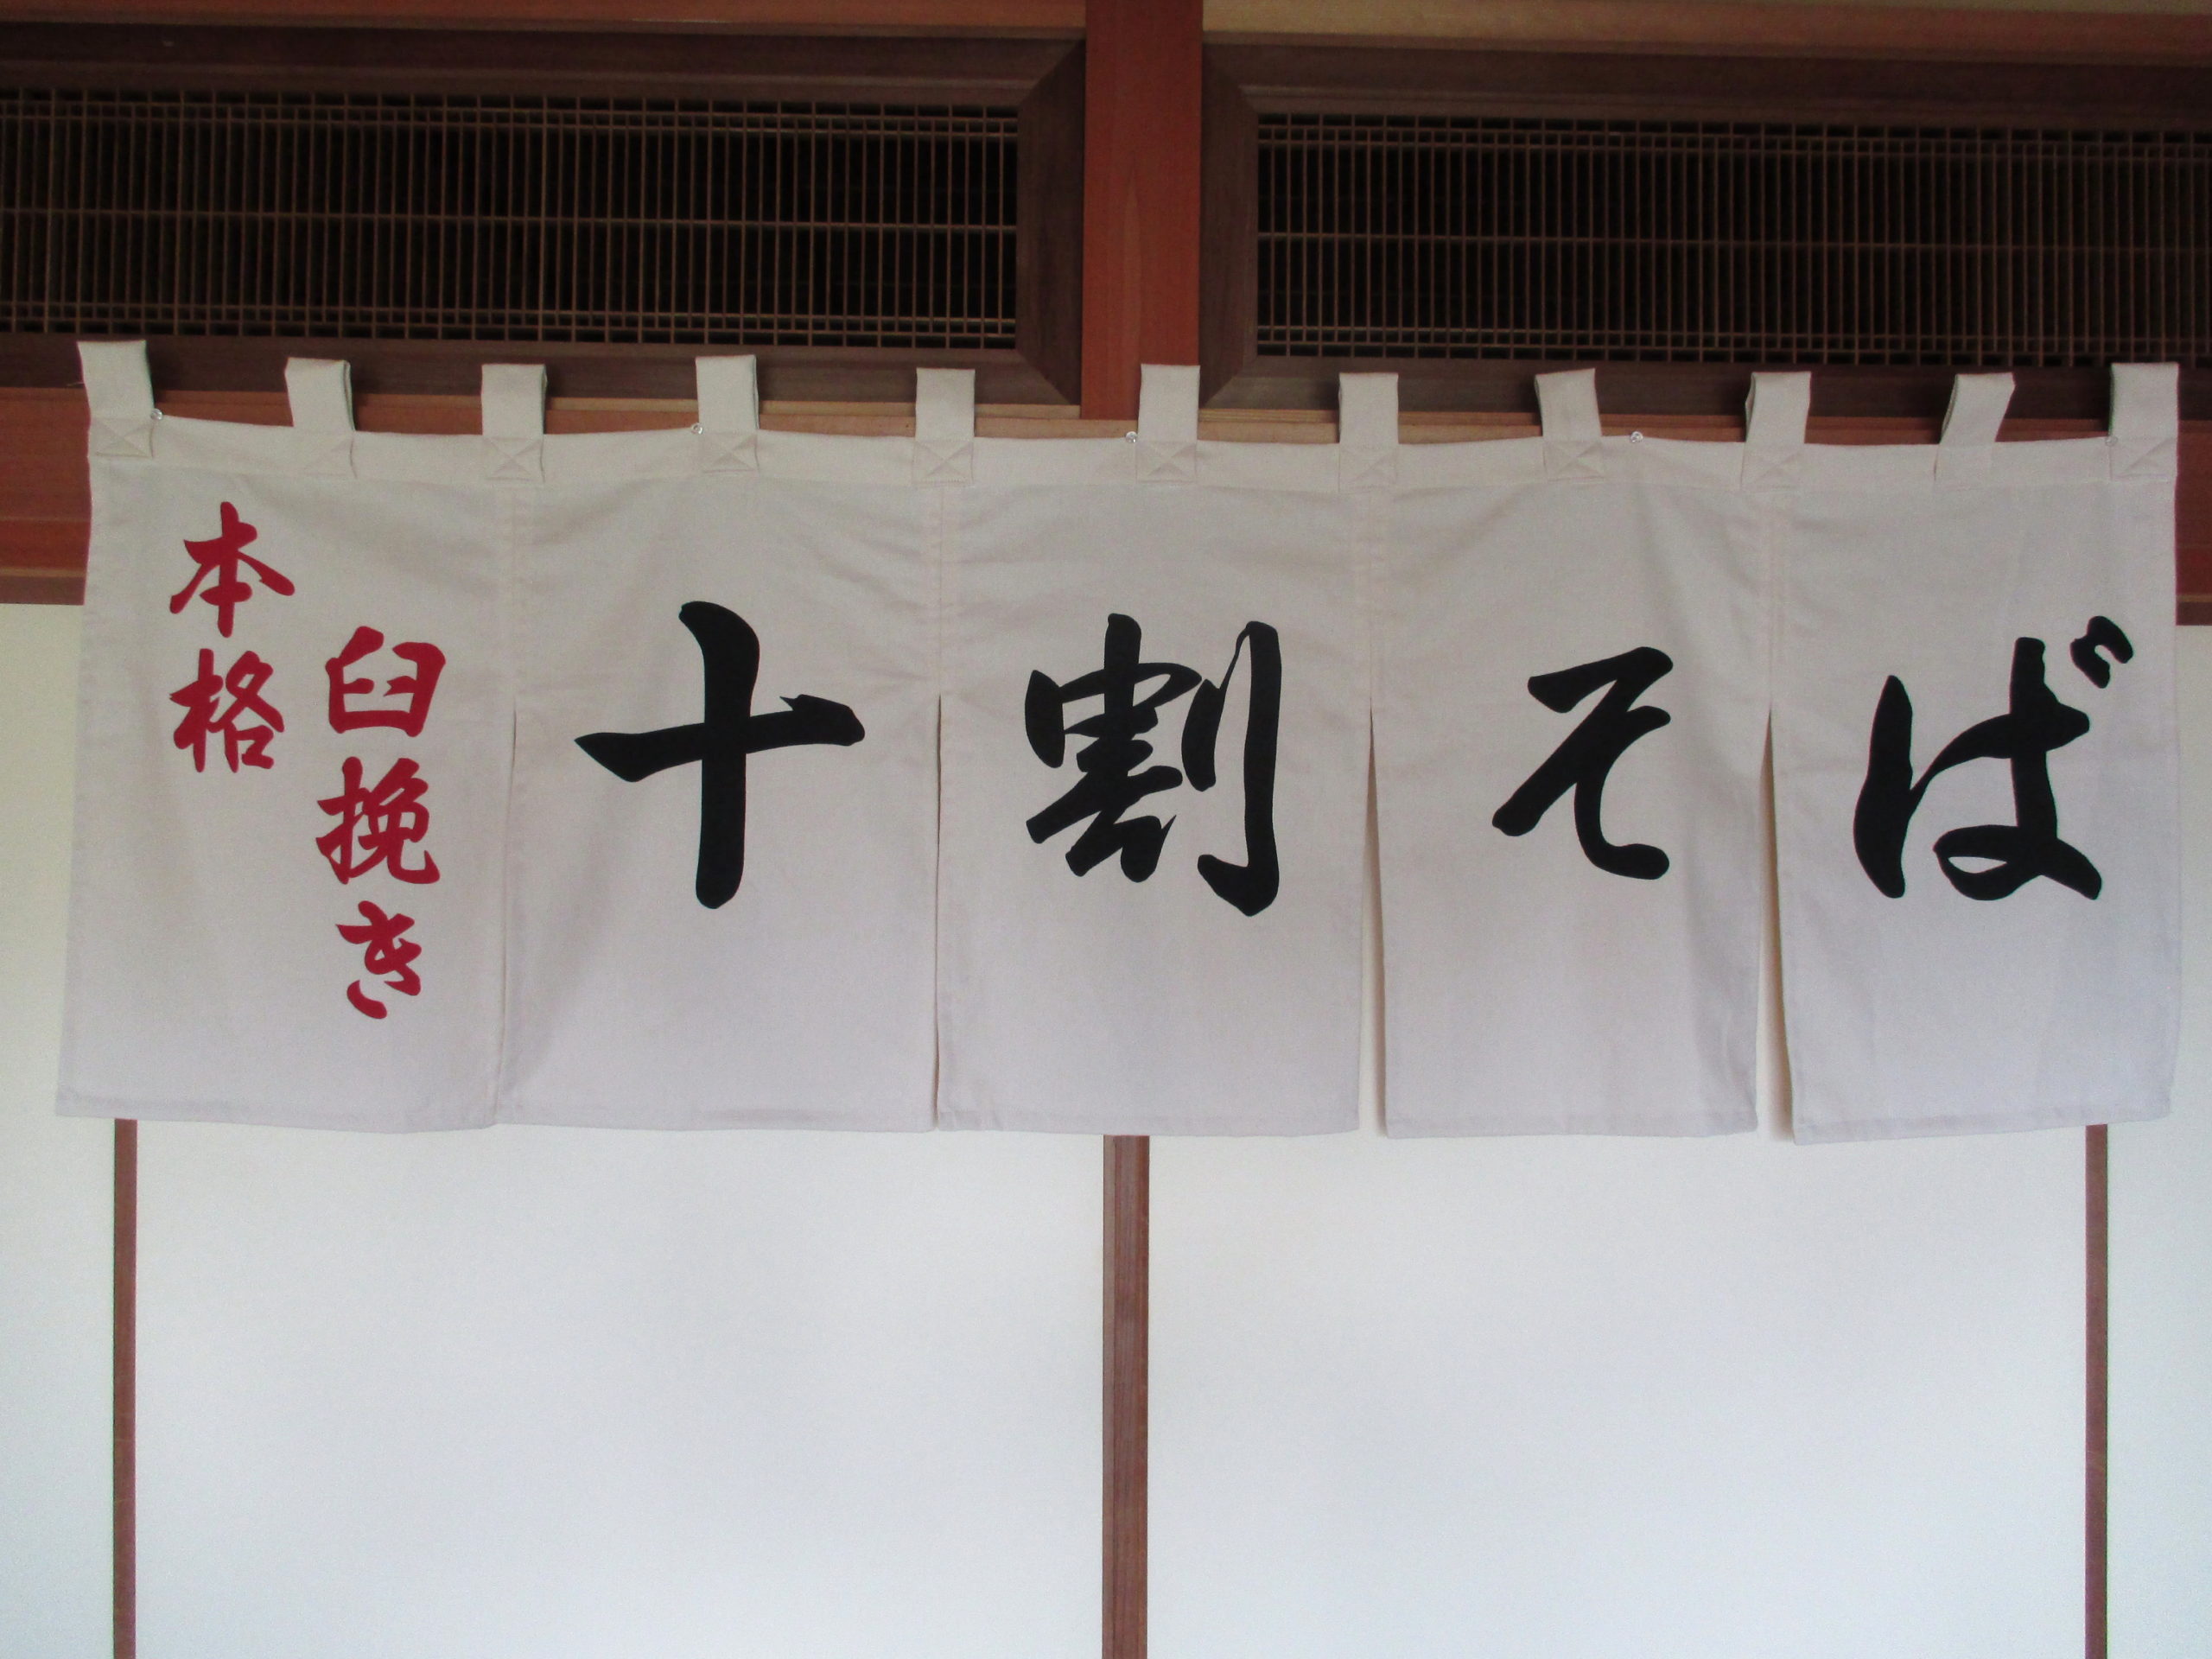 本格
臼挽き
十割そば